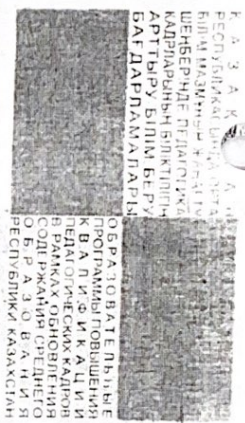 РЕСПУБЛИКАСЫНДА ОРТА
БІЛІМ МАЗМҰНЫН ЖАҢАРТУ
ШЕҢБЕРІНДЕ ПЕДАГОГИКА
КАДРЛАРЫНЫҢ БІЛІКТІЛІГІН
АРТТЫРУ БІЛІМ БЕРУ
БАҒДАРЛАМАЛАРЫ
ОБРАЗОВАТЕЛЬНЫЕ
ПРОГРАММЫ ПОВЫШЕНИЯ
КВАЛИФИКАЦИИ
ПЕДАГОГИЧЕСКИХ КАДРОВ
В РАМКАХ ОБНОВЛЕНИЯ
СОДЕРЖАНИЯ СРЕДНЕГО
ОБРАЗОВАНИЯ
РЕСПУБЛИКИ КАЗАХСТАН